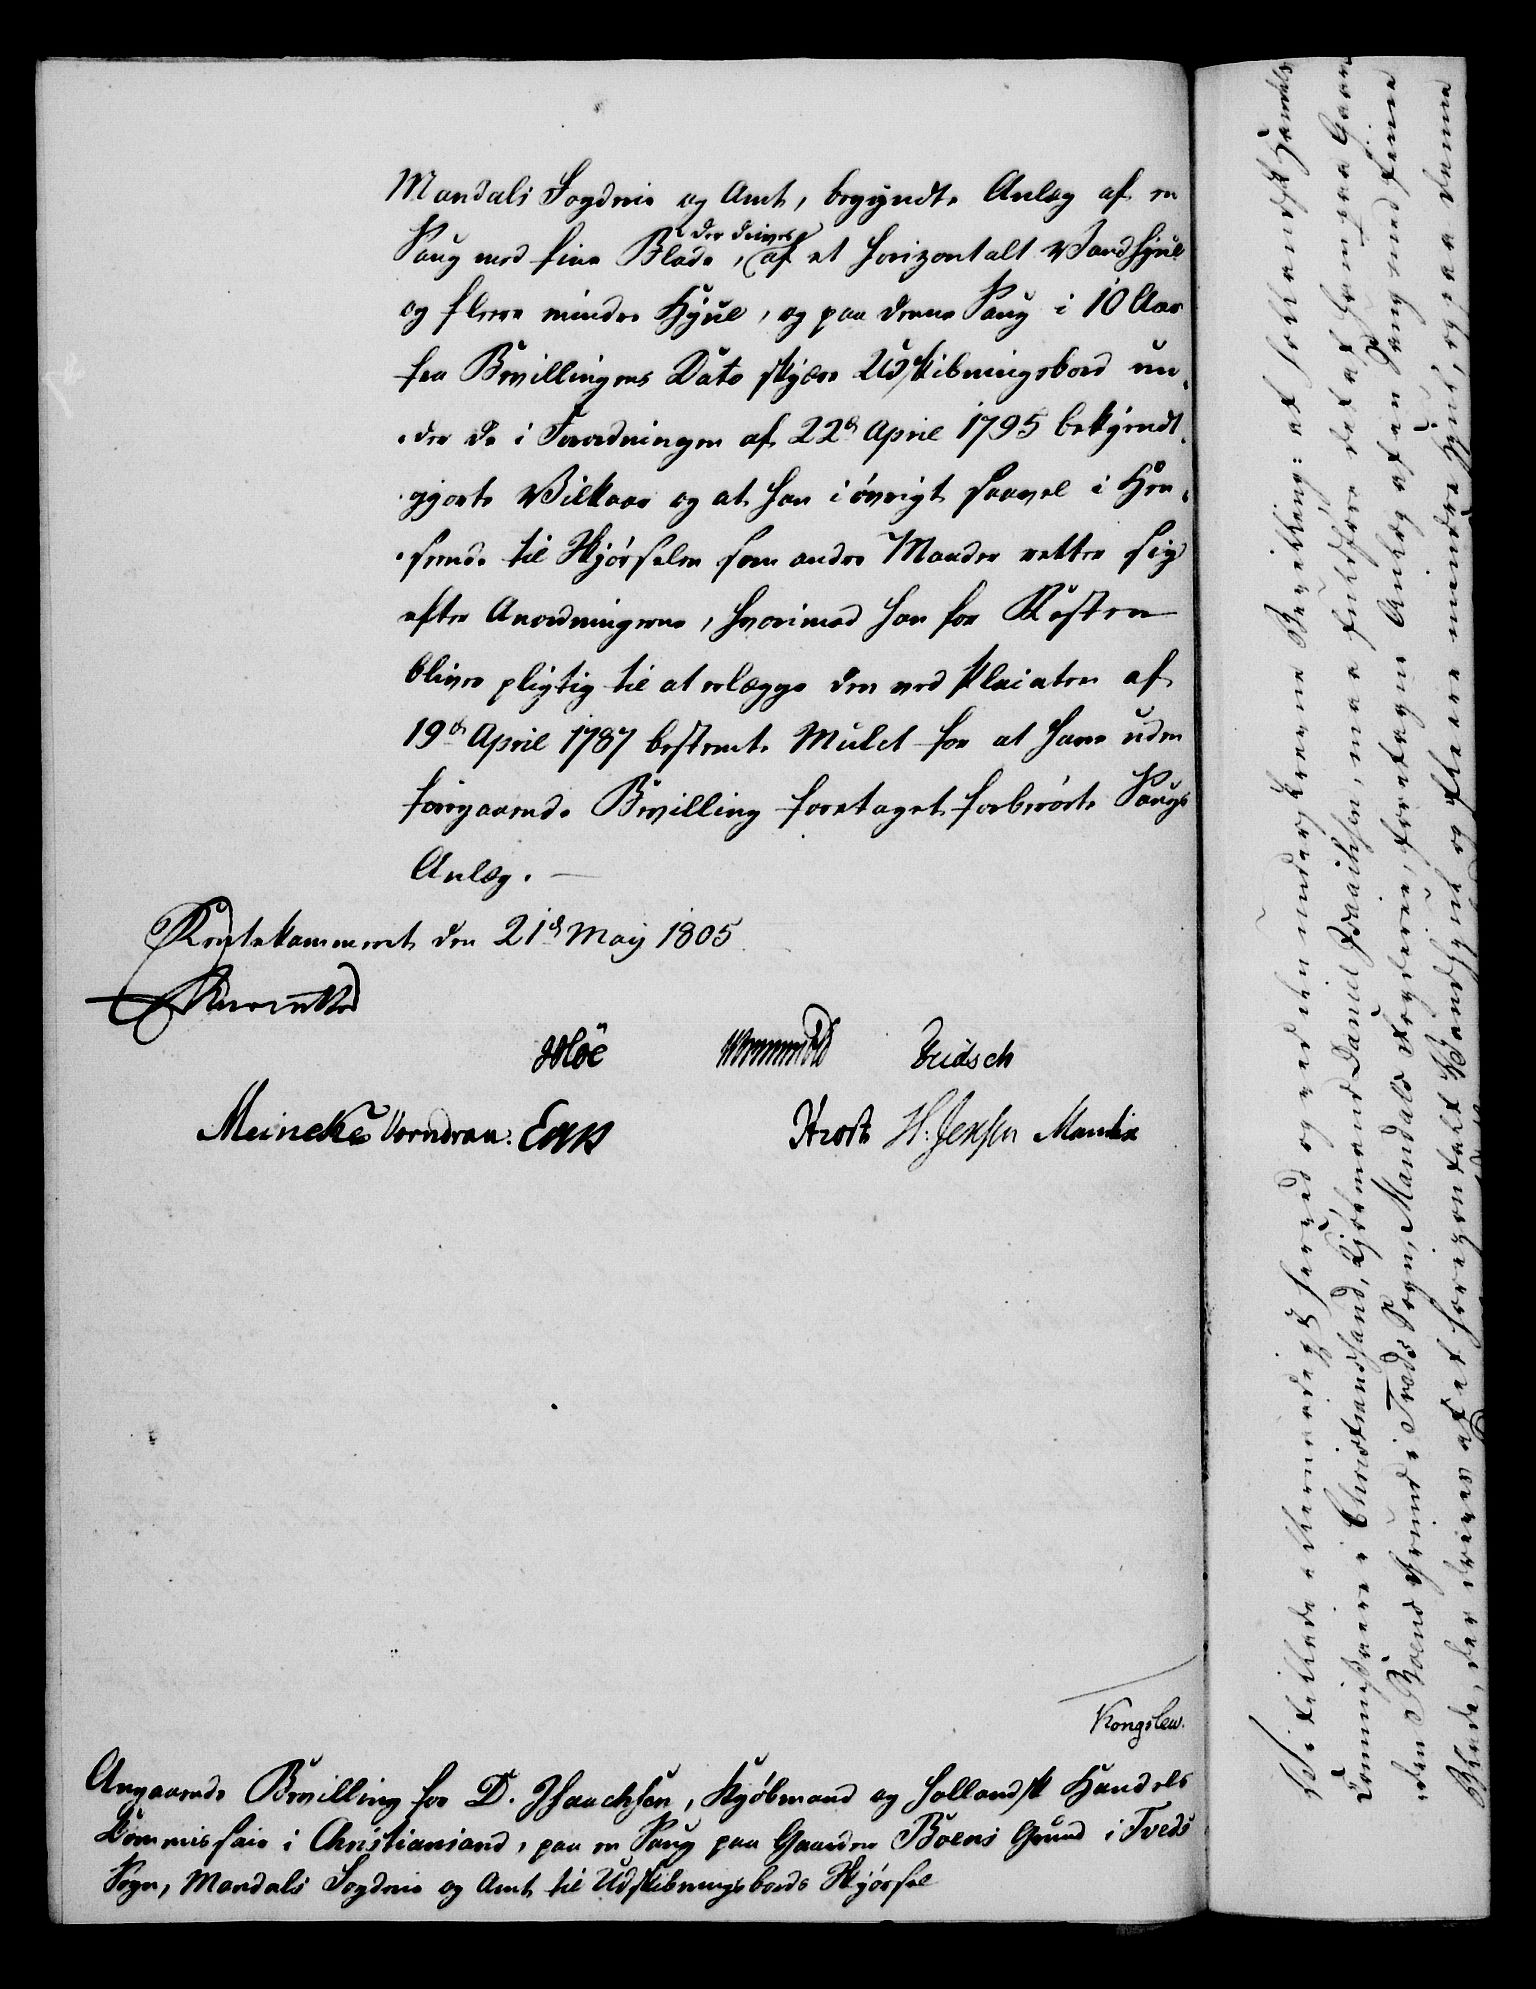 Mandals Fogderie og Amt, begyndte Anlæg af en
Saug med fine Blade, der drives af et horizontalt Vandhjul
og flere mindre Hjul, og paa denne Saug i 10 Aar
fra Bevillingens Dato skjære Udskibningsbord un-
der de i Forordningen af 22d April 1795 bekjendt-
gjorte Vilkaar og at han i øvrigt saavel i Hen-
seende til Skjørselen som andre Maader retter sig
efter Anordningerne, hvorimod han for Resten
bliver pligtig til at erlægge den ved Placaten af
19d April 1787 bestemte Mulct for at have uden
foregaaende Bevilling foretaget forberørte Saugs
Anlæg.
Rentekammeret den 21d May 1805
Reventlow
Hoë Wormskiold Fridsch
Meincke Vorndran. Eggers Krost H: Jensen Manthe
Kongslew.
Angaaende Bevilling for D. Isaachsen, Kjøbmand og hollandsk Handels
Commissair i Christiansand, paa en Saug paa Gaarden Boens Grund i Tveds
Sogn, Mandals Fogderie og Amt til Udskibningsbords Skjørsel
Vi tillade allernaadigst herved og ved den underskrevne Bevilling: at hollandsk Handels
Commissaire i Christiansand, Kjøbmand Daniel Isaachsen, maa fuldføre det af ham paa Gaar-
den Boens Grund i Tveds Sogn, Mandals Fogderie, foretagne Anlæg af en Saug med fine
Blade, der drives af et horizontalt Vandhjul og flere mindre Hjul, og paa denne